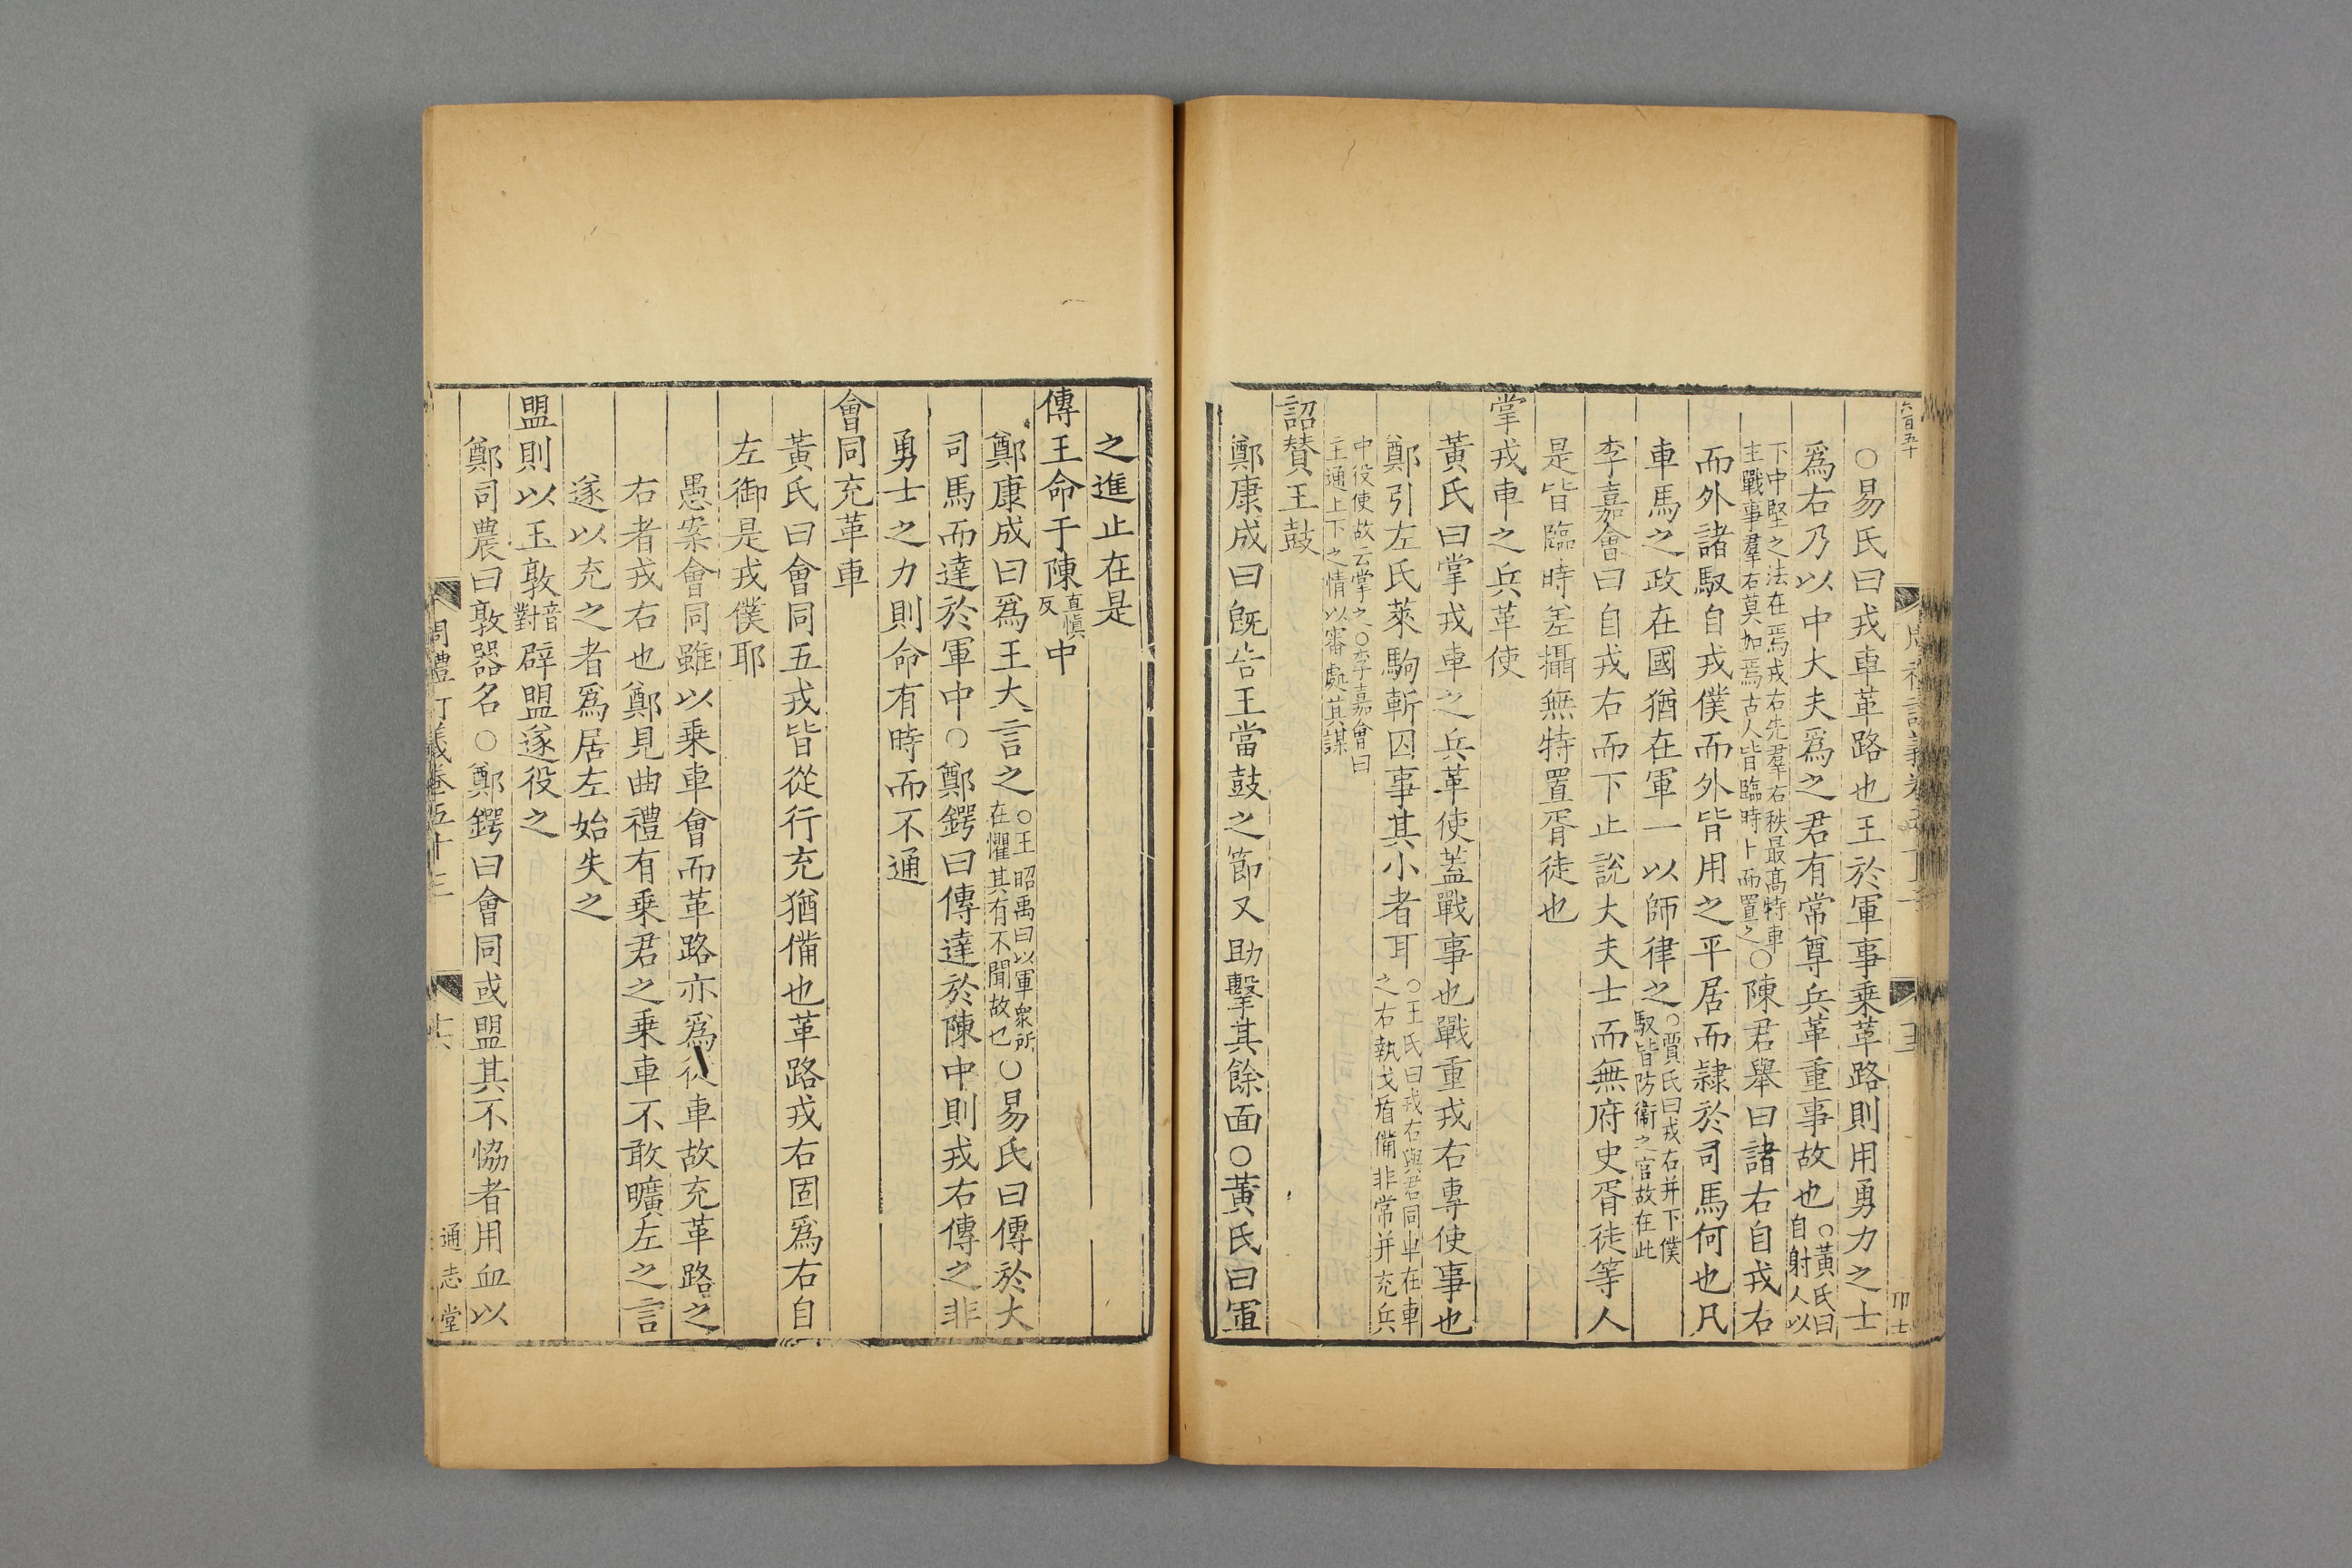 六百五十
○易氏曰戎車革路也王於軍事乗革路則用勇力之士
爲右乃以中大夫爲之君有常尊兵革重事故也○黃氏曰自射人以
下中堅之法在焉戎右先羣右秩最髙特車主戰事羣右莫加焉古人皆臨時卜而置之○陳君舉曰諸右自戎右
而外諸馭自戎僕而外皆用之平居而隸於司馬何也凡
車馬之政在國猶在軍一以師律之○賈氏曰戎右并下僕馭皆防衞之官故在此
李嘉會曰自戎右而下止說大夫士而無府史胥徒等人
是皆臨時差攝無特置胥徒也
掌戎車之兵革使
黃氏曰掌戎車之兵革使蓋戰事也戰重戎右專使事也
鄭引左氏萊駒斬囚事其小者耳○王氏曰戎右與君同車在車之右執戈盾備非常并充兵
中役使故云掌之○李嘉會曰主通上下之情以審處其謀
詔贊王鼓
鄭康成曰旣告王當鼓之節又助擊其餘面○黃氏曰軍
之進止在是
傳王命于陳直愼反中
鄭康成曰爲王大言之○王昭禹曰以軍衆所在懼其有不聞故也○易氏曰傳於大
司馬而達於軍中○鄭鍔曰傳達於陳中則戎右傳之非
勇士之力則命有時而不通
會同充革車
黃氏曰會同五戎皆從行充猶備也革路戎右固爲右自
左御是戎僕耶
愚案會同雖以乗車會而革路亦爲從車故充革路之
右者戎右也鄭見曲禮有乗君之乗車不敢曠左之言
遂以充之者爲居左始失之
盟則以玉敦音對辟盟遂役之
鄭司農曰敦器名○鄭鍔曰會同或盟其不恊者用血以
周禮訂義卷五十三
十六
通志堂